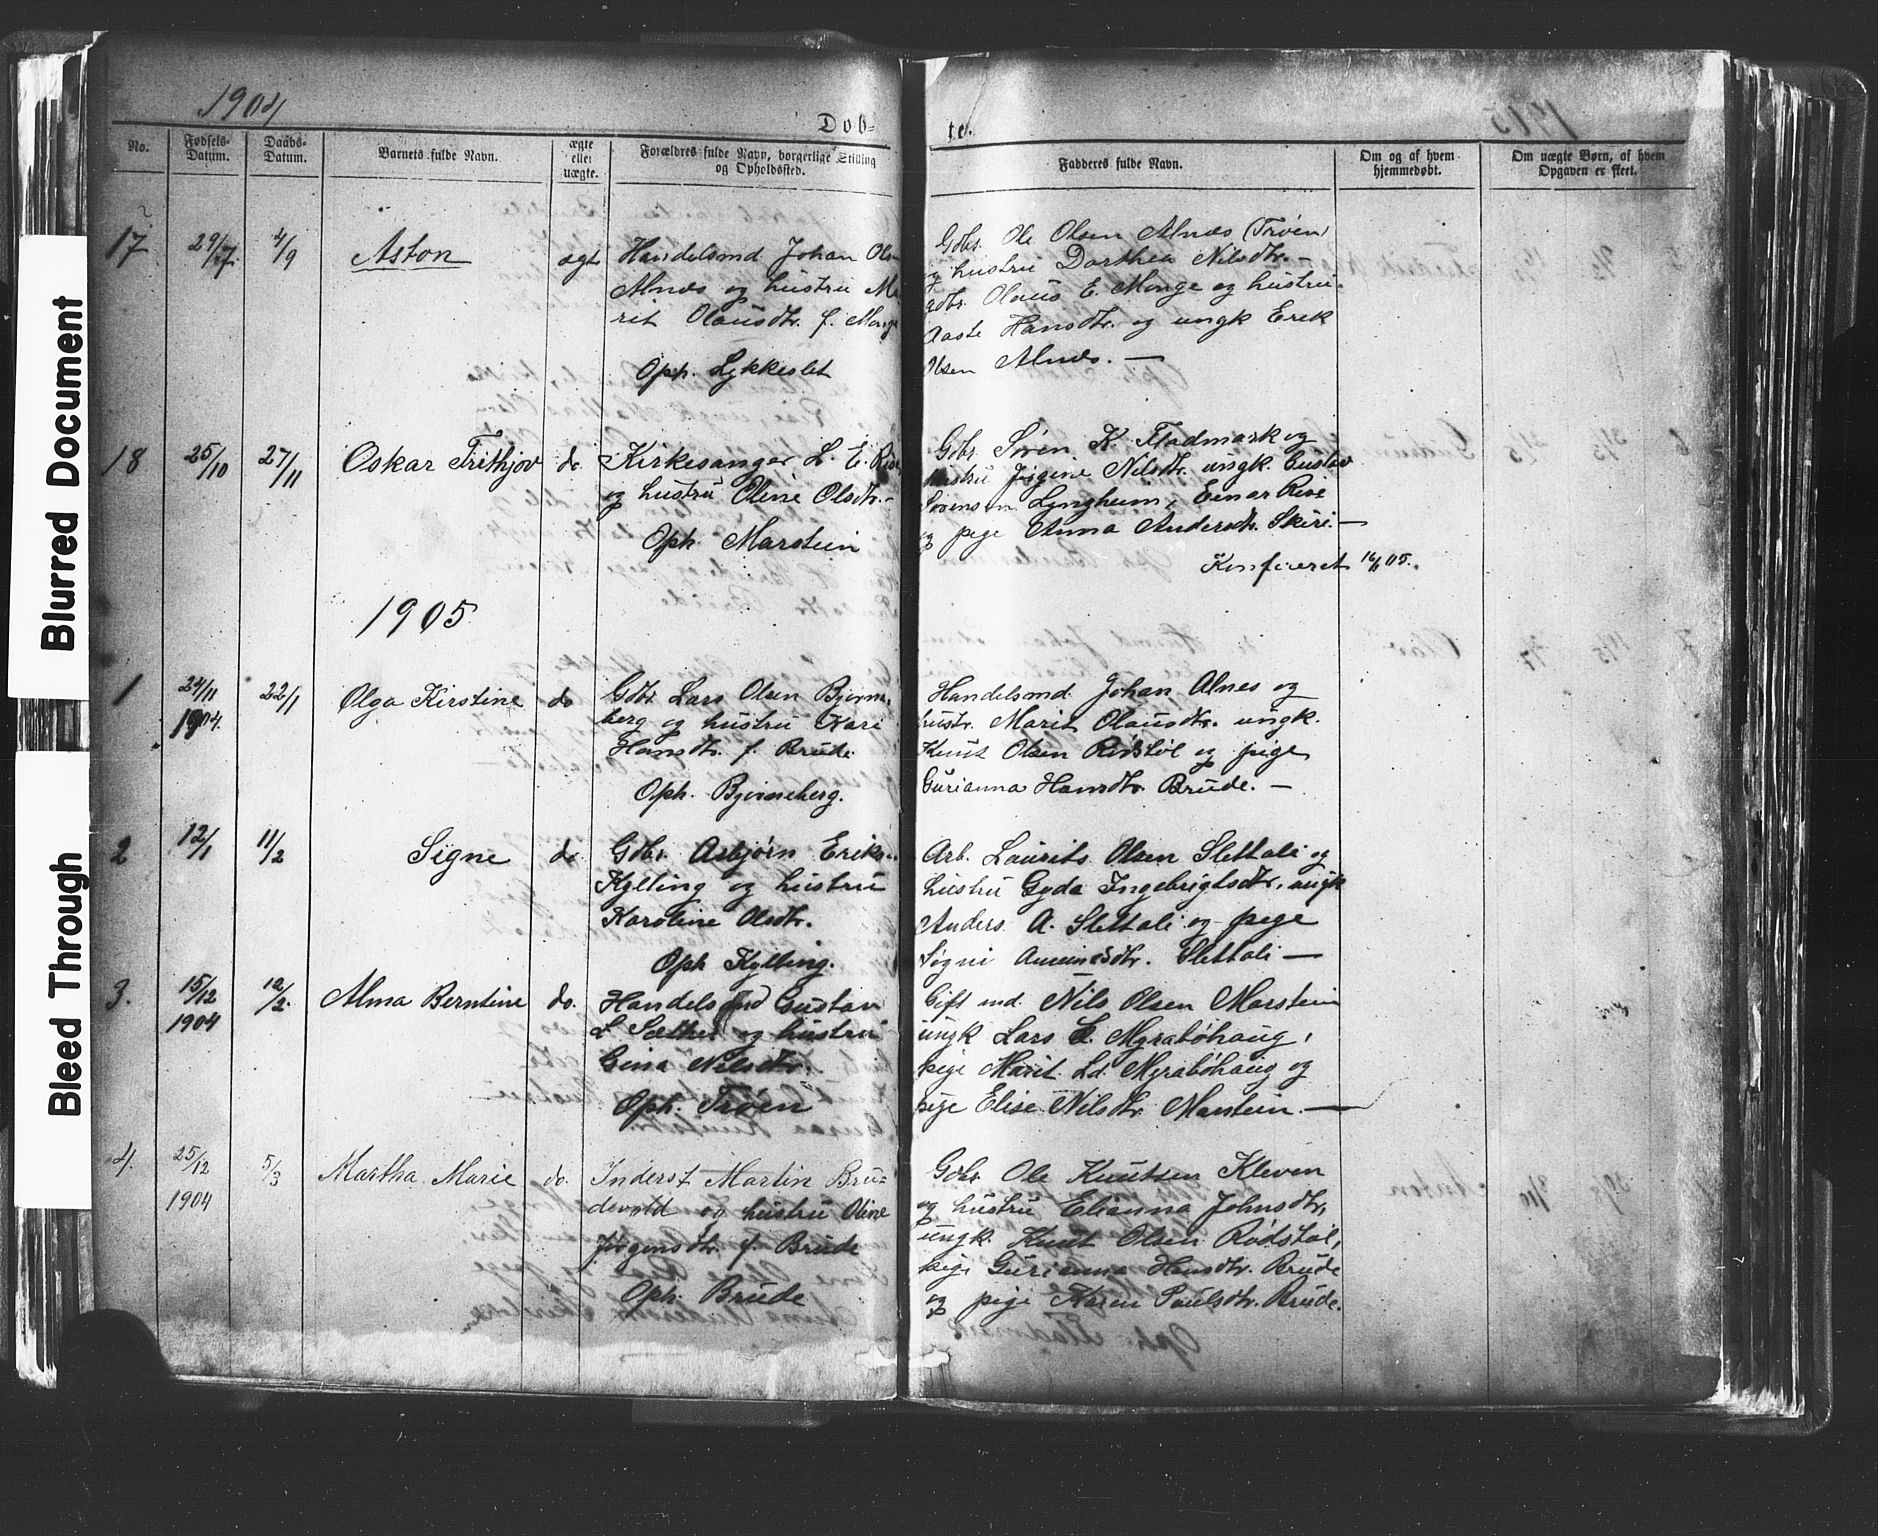 Blurred Document
Bleed Through
1904
Døb-
te.
1905
No.
Fødsels-
Datum.
Daabs-
Datum.
Barnets fulde Navn.
ægte
eller
uægte.
Forældres fulde Navn, borgerlige Stilling
og Opholdssted.
Fadderes fulde Navn.
Om og af hvem
hjemmedøbt.
Om uægte Børn, af hvem
Opgaven er skeet.
17 29/7 4/9 Aston ægt
Handelsmd Johan Ols-
Alnæs og hustru Ma
rit Olausdtr. f. Monge
Oph. Lykkeslet
Gdbr. Ole Olsen Alnæs (Trøen)
og hustru Dorthea Nilsdtr. —
gdbr. Olaus E. Monge og hustru
Aaste Hansdtr. og ungk Erik
Olsen Alnæs. —
18 25/10 27/11 Oskar Frithjov do
Kirkesanger L. E. Rise
og hustru Oline Olsdtr. -
Oph. Marstein
Gdbr. Søren K. Fladmark og
hustru Jørgine Nilsdtr. ungk. Gustav
Sørensen Lyngheim, Einar Rise
og pige Anna Andersdtr. Skiri. —
Konfireret 05.
1905
1 24/11 22/1 Olga Kirstine do
1904.
Gdbr. Lars Olsen Bjørne-
berg og hustru Kari
Hansdtr. f. Brude
Oph. Bjørneberg.
Handelsmd. Johan Alnes og
hustr. Marit Olausdtr. ungk.
Knut Olsen Rødstøl og pige
Gurianna Hansdtr. Brude. —
2 12/1 11/2 Signe do
Gdbr. Asbjørn Eriks.
Kylling og hustru
Karoline Olsdtr.
Oph Kylling.
Arb. Laurits Olsen Slettali og
hustru Gyda Ingebrigtsdtr. ungk
Anders A. Slettali og pige
Signi Slettali —
3. 15/12 12/2. Alma Berntine do.
1904
Handelsmd Gustav
L Sæther og hustru
Gina Nilsdtr.
Oph. Trøen
Gift md. Nils Olsen Marstein
ungk Lars L. Myrabøhaug,
pige Marit Ld. Myrabøhaug og
pige Elise Nilsdtr. Marstein. —
4. 25/12 5/3 Martha Marie do.
1904
Inderst Martin Bru-
devold og hustru Oline
Jørgensdtr. f. Brude
Oph. Brude
Gdbr. Ole Knutsen Kleven
og hustru Elianna Johnsdtr,
ungk. Knut Olsen Rødstøl,
pige Gurianna Hansdtr. Brude
og pige Karen Paulsdtr. Brude.